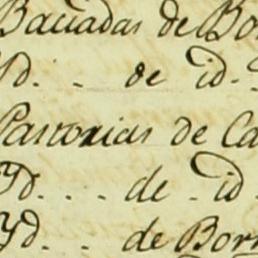 Bacadas de Bo
Yd. . . de id.
Pastorias de Ca
Yd. . . . de . id
Yd. . . de Borr